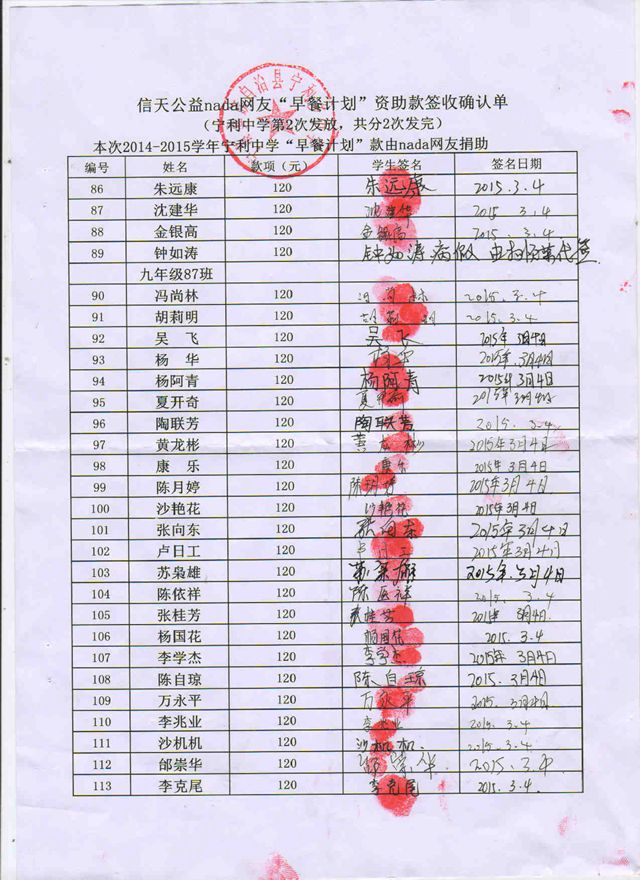 信天公益nada网友“早餐计划”资助款签收确认单
（宁利中学第2次发放，共分2次发完）
本次2014-2015学年宁利中学“早餐计划”款由nada网友捐助
编号 姓名 款项（元） 学生签名 签名日期
86 朱远康 120 朱远康 2015.3.4
87 沈建华 120 沈建华 2015.3.4
88 金银高 120 金银高 2015.3.4
89 钟如涛 120 钟如涛病假 由杨杨第代签
九年级87班 120
90 冯尚林 120 冯尚林 2015.3.4
91 胡莉明 120 胡莉明 2015.3.4
92 吴 飞 120 吴飞 2015年3月4日
93 杨 华 120 杨华 2015年3月4日
94 杨阿青 120 杨阿青 2015年3月4日
95 夏开奇 120 夏开奇 2015年3月4日
96 陶联芳 120 陶联芳 2015.3.4
97 黄龙彬 120 黄龙彬 2015年3月4日
98 康 乐 120 康乐 2015年3月4日
99 陈月婷 120 陈月婷 2015年3月4日
100 沙艳花 120 沙艳花 2015年3月4日
101 张向东 120 张向东 2015年3月4日
102 卢日工 120 卢日工 2015年3月4日
103 苏枭雄 120 苏枭雄 2015年.3月4日
104 陈依祥 120 陈依祥 2015.3.4
105 张桂芳 120 张桂芳 2014年3月4日
106 杨国花 120 杨国花 2015.3.4
107 李学杰 120 李学杰 2015年3月4日
108 陈自琼 120 陈自琼 2015.3月4日
109 万永平 120 万永平 2015.3月4日
110 李兆业 120 李兆业 2015.3.4
111 沙机机 120 沙机机. 2015.3.4
112 邰崇华 120 邰崇华 2015.3.4
113 李克尾 120 李克尾 2015.3.4.